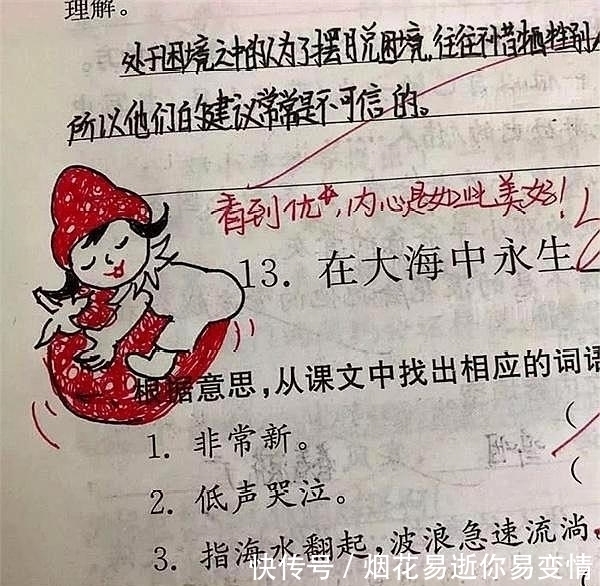 理解。
处于困境之中的人为了摆脱困境,往往不惜牺牲别人
所以他们的建议常常是不可信的。
看到优*,内心是如此美好!
13. 在大海中永生
根据意思,从课文中找出相应的词语
1. 非常新。(
2. 低声哭泣。(
3. 指海水翻起,波浪急速流淌。
快传号/烟花易逝你易变情